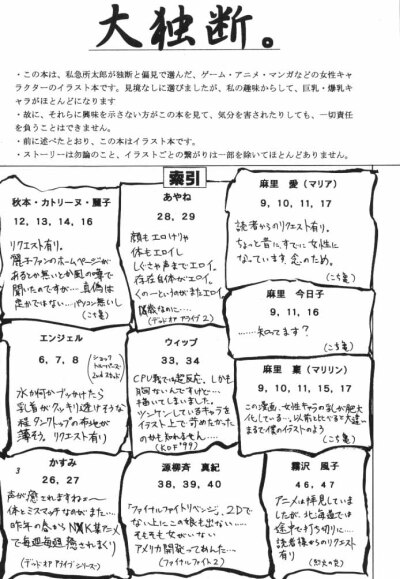 大独断。
・この本は、私急所太郎が独断と偏見で選んだ、ゲーム・アニメ・マンガなどの女性キャ
ラクターのイラスト本です。見境なしに選びましたが、私の趣味からして、巨乳・爆乳キ
ャラがほとんどになります
・故に、それらに興味を示さない方がこの本を見て、気分を害されたりしても、一切責任
を負うことはできません。
・前に述べたとおり、この本はイラスト本です。
・ストーリーは勿論のこと、イラストごとの繋がりは一部を除いてほとんどありません。
索引
秋本・カトリーヌ・麗子
12, 13, 14, 16
リクエスト有り。
麗子ファンのホームページが
あるとか無いとか風の噂で
聞いたのですが…真偽は
定かではない…パソコン無いし
(こち亀)
あやね
28, 29
顔もエロけりゃ
体もエロイし
しぐさ声までエロイ。
存在自体がエロイ。
くの一というのがまたエロイ
(デッド オア アライブ 2)
麻里 愛(マリア)
9, 10, 11, 17
読者からのリクエスト有り。
ちょっと昔に、すでに女性に
なっています、念のため。
(こち亀)
麻里 今日子
9, 11, 16
……知ってます?
(こち亀)
エンジェル
6, 7, 8
水か何かブッかけたら
乳首がクッキリ透けそうな
程タンクトップの布地が
薄そう。リクエスト有り
ウィップ
33, 34
CPU戦では超反応、しかも
胸ないんですけど…
描いてしまいました。
ツンケンしているキャラを
イラスト上で苛めたかった
のかも知れません…
(KOF'99)
麻里 稟(マリリン)
9, 10, 11, 15, 17
この漫画、女性キャラの乳が肥大
化している…以前とくらべると大違い
まるで僕のイラストのよう
(こち亀)
かすみ
26, 27
声が癒されますねェ〜
体とミスマッチなのがまた…
昨年の春からNHK某アニメ
で毎週毎週癒されまくり
(デッド オア アライブ シリーズ)
源柳斉 真紀
38, 39, 40
「ファイナルファイトリベンジ」、2Dで
ない上にこの娘も出ない……
そもそも女がいない
アメリカ開発ってあんた…
(ファイナルファイト2)
霧沢 風子
46, 47
アニメは拝見していま
したが、北海道では
途中で打ち切りに…
読者様からのリクエスト
有り
(烈火の炎)